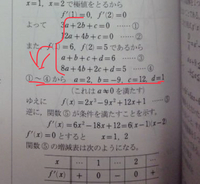 x=1, x=2 で極値をとるから
f′(1)=0, f′(2)=0
よって 3a+2b+c=0 ……①
12a+4b+c=0 ……②
また f(1)=6, f(2)=5 であるから
a+b+c+d=6 ……③
8a+4b+2c+d=5 ……④
①~④から a=2, b=-9, c=12, d=1
(これは a≠0 を満たす)
ゆえに f(x)=2x³-9x²+12x+1 ……⑤
逆に, 関数⑤が条件を満たすことを示す。
f′(x)=6x²-18x+12=6(x-1)(x-2)
f′(x)=0 とすると x=1, 2
関数⑤の増減表は次のようになる。
x 1 2
f′(x) + 0 - 0 +